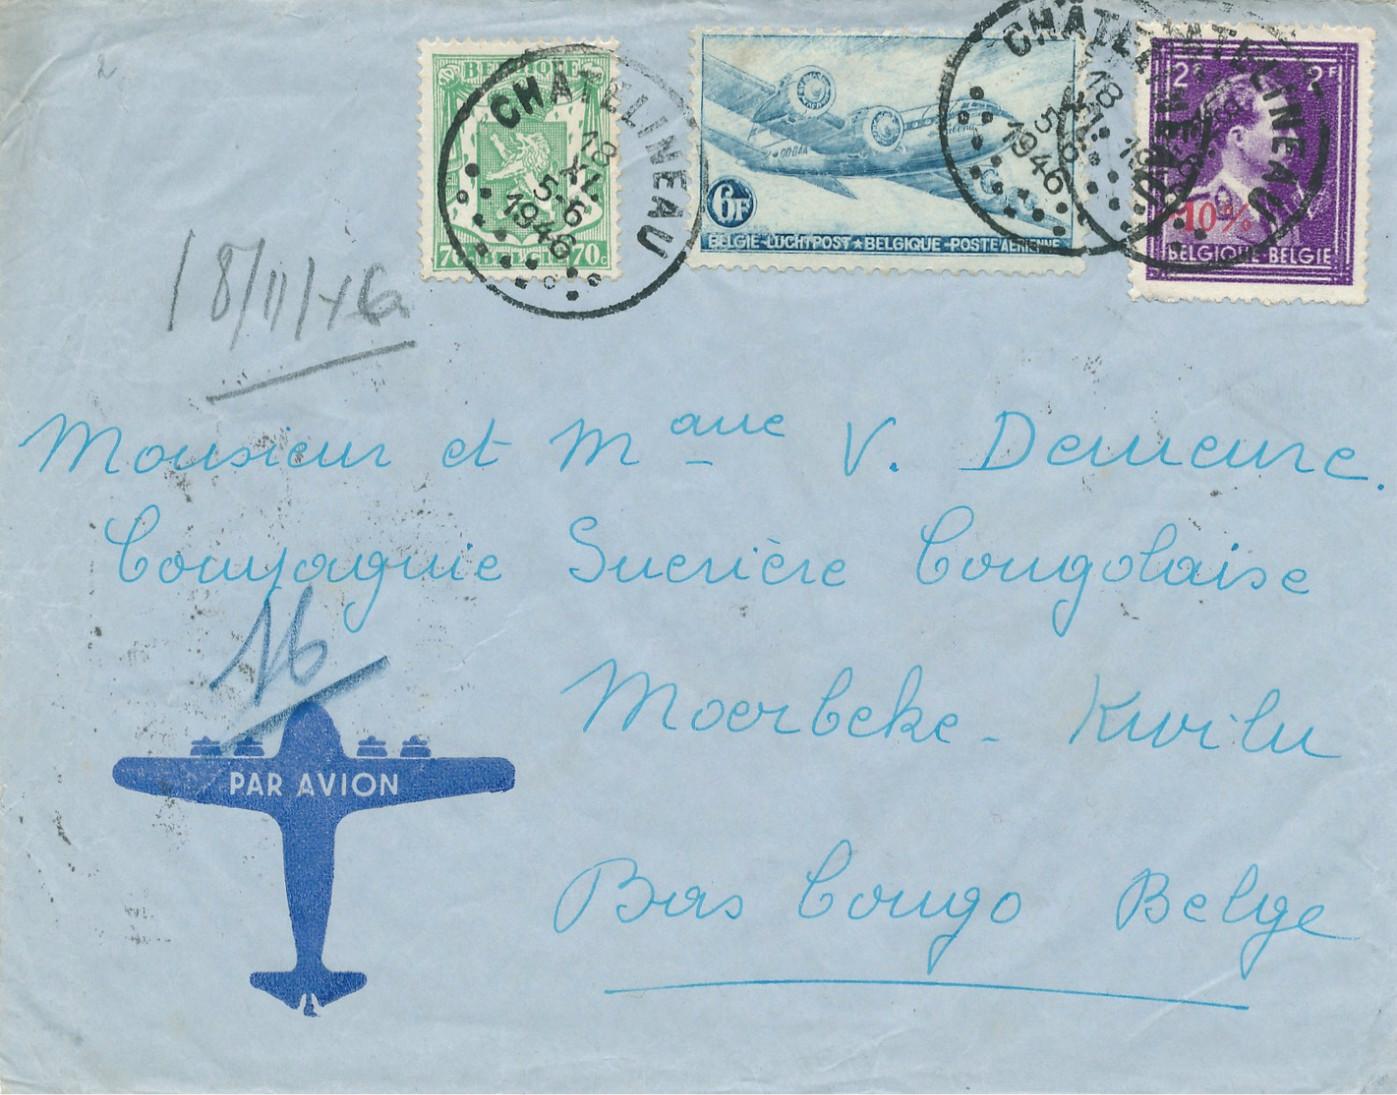 BELGIQUE
70c BELGIË 70c
CHÂTELINEAU
18 XI
5-6
1946
6F
OO-CBA
BELGIE-LUCHTPOST★BELGIQUE-POSTE AERIENNE
CHÂTELINEAU
18 XI
5-6
1946
2F 2F
-10%
BELGIQUE BELGIE
CHÂTELINEAU
18/11/46
Monsieur et Mame V. Demeure.
Compagnie Sucrière Congolaise
16
Moerbeke - Kwilu
PAR AVION
Bas Congo Belge